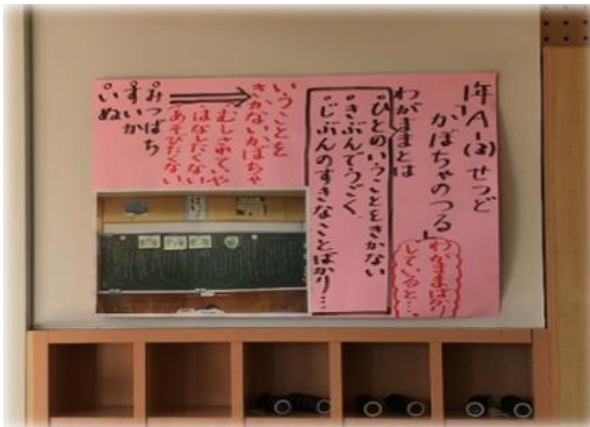 1年「A-(3)せつど
かぼちゃのつる」
わがままばかり
していると…
わがままとは
・ひとのいうことをきかない
・きぶんでうごく
・じぶんのすきなことばかり…
いうことを
きかないかぼちゃ
・むしされていや
・はなしたくない
・あそびたくない
・みつばち
・すいか
・いぬ